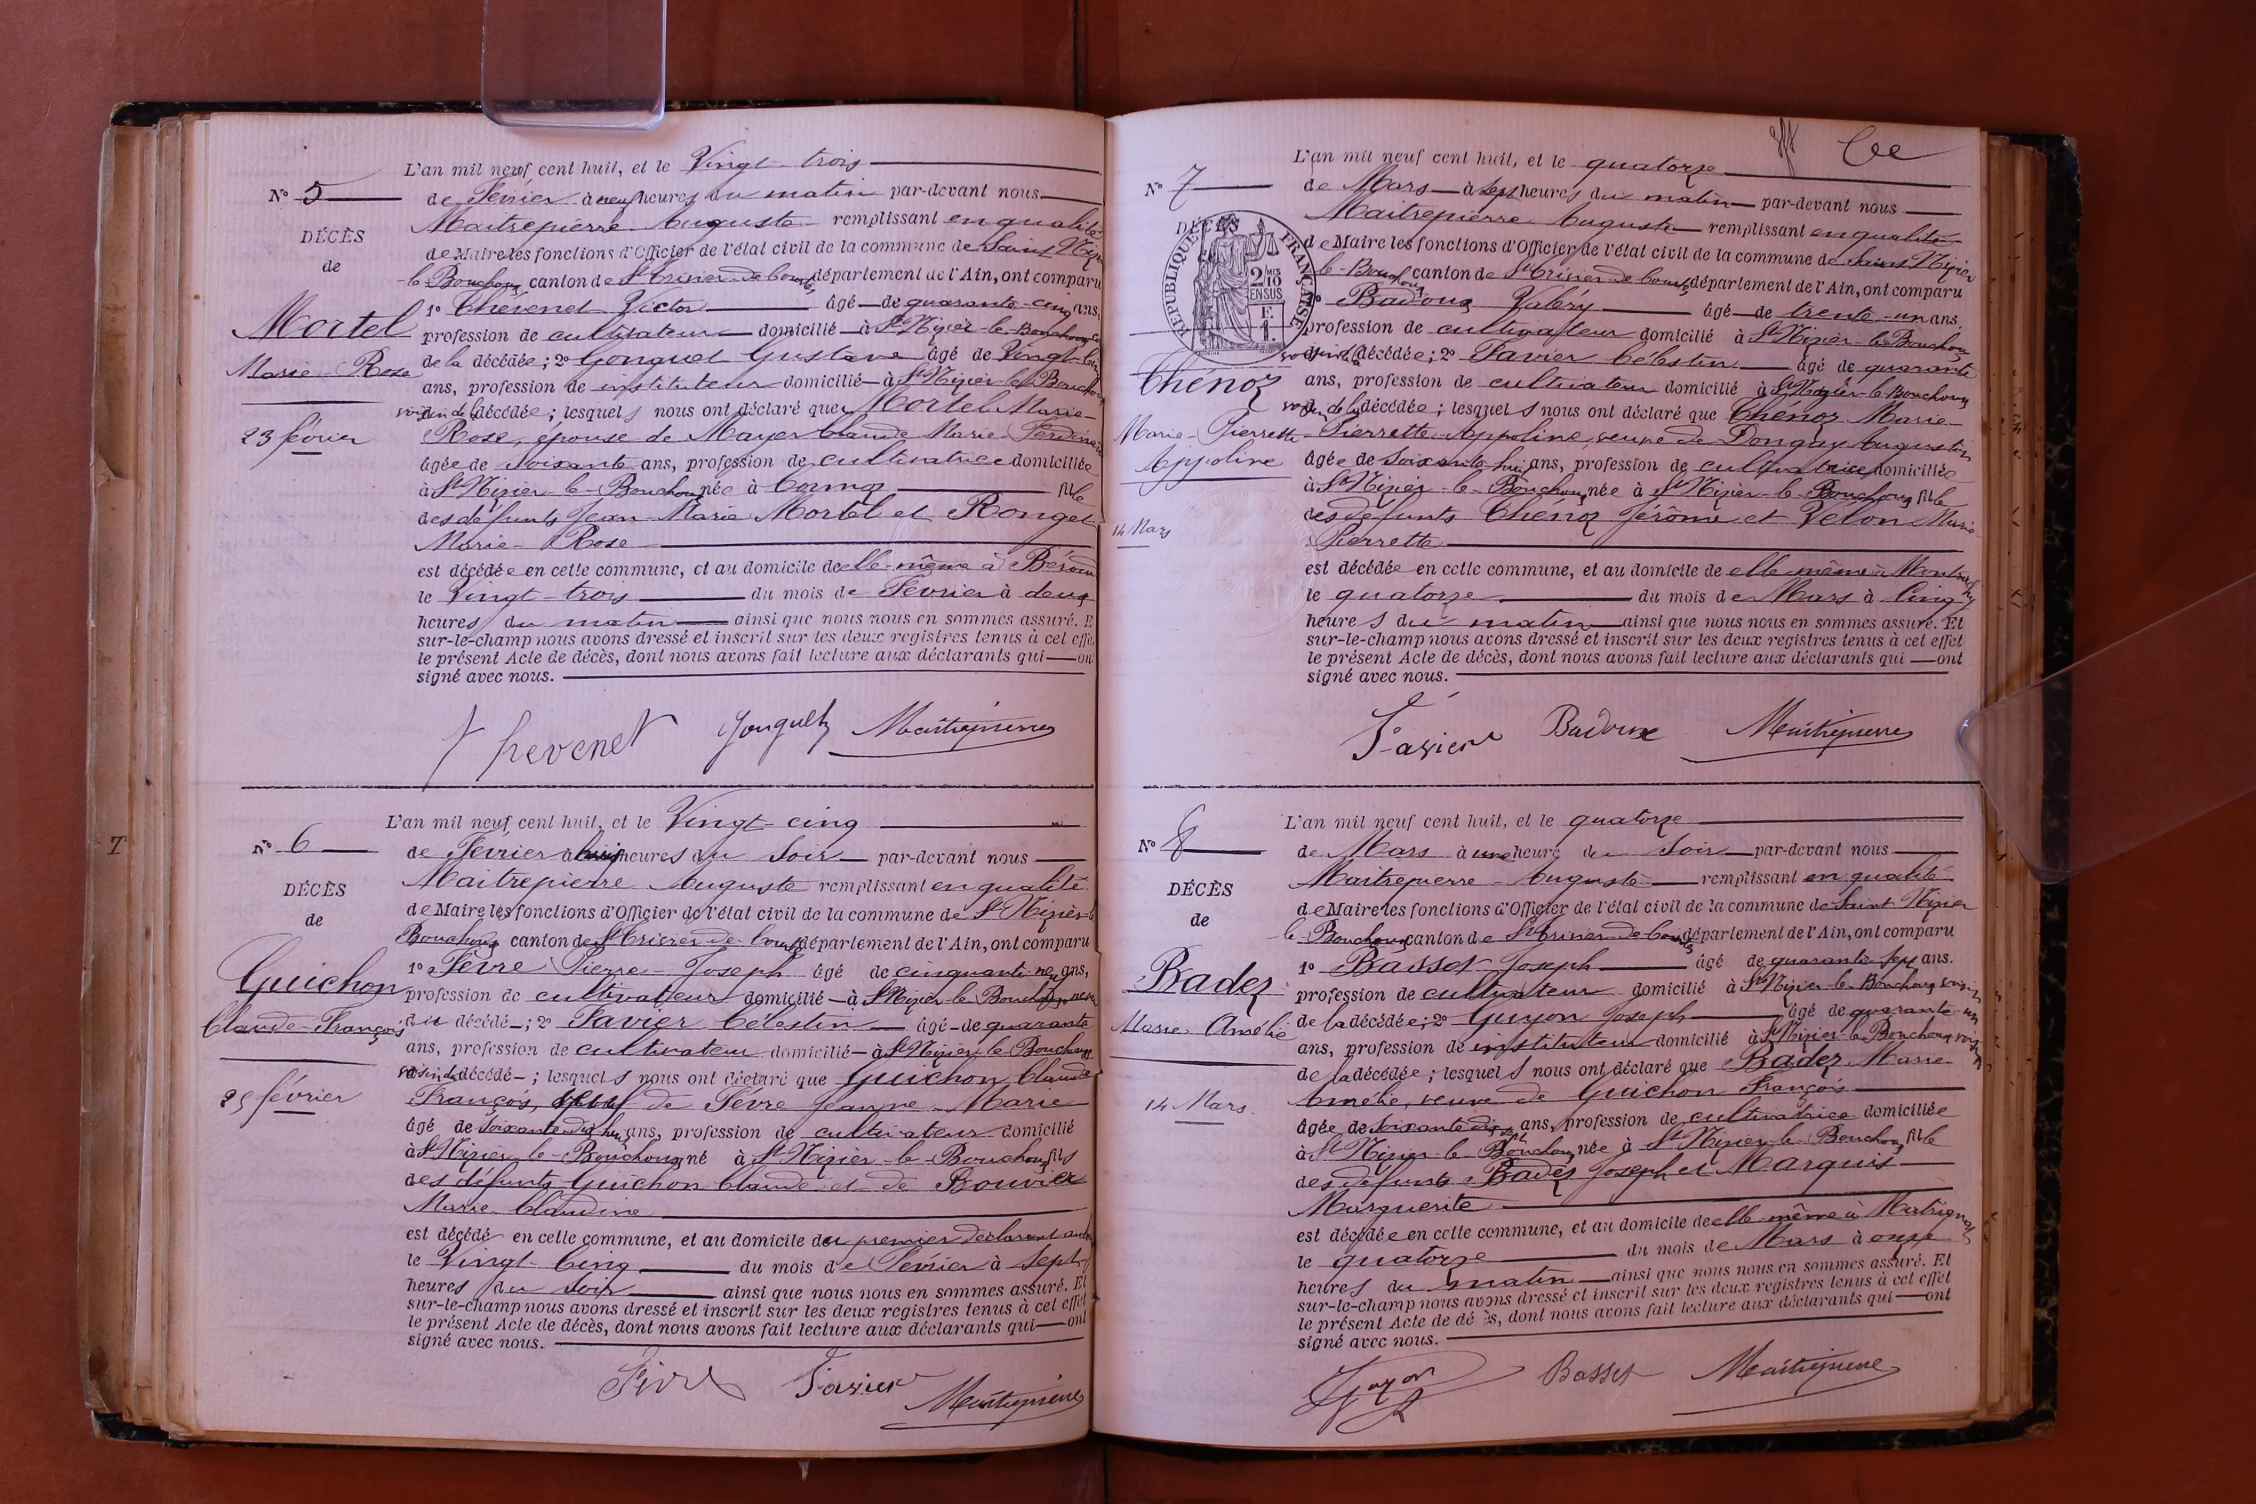 L'an mil neuf cent huit, et le Vingt-trois
N° 5
de Février à neuf heures du matin par-devant nous
Maitrepierre Auguste remplissant en qualité
DÉCÈS
de Maire les fonctions d'Officier de l'état civil de la commune de Saint Nizier
de
le Bouchoux canton de St Trivier de Courtes département de l'Ain, ont comparu
1° Thévenet Victor âgé de quarante-cinq ans,
Mortel
profession de cultivateur domicilié à St Nizier-le-Bouchoux
Marie-Rose
de la décédée ; 2° Gonguet Gustave âgé de Vingt
ans, profession de instituteur domicilié à St Nizier le Bouchoux
voisin de la décédée ; lesquels nous ont déclaré que Mortel Marie-
23 février
Rose, épouse de Mayer Claude Marie
âgée de soixante ans, profession de cultivatrice domiciliée
à St Nizier-le-Bouchoux née à Cormoz fille
des défunts Jean-Marie Mortel et Ronget
Marie-Rose
est décédée en cette commune, et au domicile de elle-même à
le Vingt-trois du mois de Février à deux
heures du matin ainsi que nous nous en sommes assuré. E
sur-le-champ nous avons dressé et inscrit sur les deux registres tenus à cet effe
le présent Acte de décès, dont nous avons fait lecture aux déclarants qui ont
signé avec nous.
Thevenet Gonguet Maitrepierre
L'an mil neuf cent huit, et le Vingt-cinq
N° 6
de Février à huit heures du soir par-devant nous
Maitrepierre Auguste remplissant en qualité
DÉCÈS
de Maire les fonctions d'Officier de l'état civil de la commune de St Nizier-le
de
Bouchoux canton de St Trivier de Courtes département de l'Ain, ont comparu
1° Fèvre Pierre Joseph âgé de cinquante neuf ans,
Guichon
profession de cultivateur domicilié à St Nizier-le Bouchoux
Claude-François
du décédé ; 2° Favier Célestin âgé de quarante
ans, profession de cultivateur domicilié à St Nizier le Bouchoux
voisin du décédé ; lesquels nous ont déclaré que Guichon Claude
25 février
François, de Fèvre Jeanne-Marie
âgé de soixante dix huit ans, profession de cultivateur domicilié
à St Nizier-le-Bouchoux né à St Nizier-le-Bouchoux fils
des défunts Guichon Claude et de Bouvier
Marie Claudine
est décédé en cette commune, et au domicile du premier déclarant
le Vingt-Cinq du mois de Février à sept
heures du soir ainsi que nous nous en sommes assuré. Et
sur-le-champ nous avons dressé et inscrit sur les deux registres tenus à cet effet
le présent Acte de décès, dont nous avons fait lecture aux déclarants qui ont
signé avec nous.
Fèvre Favier Maitrepierre
L'an mil neuf cent huit, et le quatorze
N° 7
de Mars à sept heures du matin par-devant nous
Maitrepierre Auguste remplissant en qualité
DÉCÈS
RÉPUBLIQUE FRANÇAISE
2 MES 10 EN SUS
F. 1.
de Maire les fonctions d'Officier de l'état civil de la commune de Saint Nizier
le-Bouchoux canton de St Trivier de Courtes département de l'Ain, ont comparu
Badoux Valéry âgé de trente-un ans,
profession de cultivateur domicilié à St Nizier-le Bouchoux
voisin de la décédée ; 2° Favier Célestin âgé de quarante
Chénoz
ans, profession de cultivateur domicilié à St Nizier-le-Bouchoux
voisin de la décédée ; lesquels nous ont déclaré que Chénoz Marie-
Marie-Pierrette
Pierrette-Appoline, veuve de Donguy Augustin
Appoline
âgée de soixante-huit ans, profession de cultivatrice domiciliée
à St Nizier-le-Bouchoux née à St Nizier-le-Bouchoux fille
des défunts Chénoz Jérôme et Velon Marie
14 Mars
Pierrette
est décédée en cette commune, et au domicile de elle-même à
le quatorze du mois de Mars à Cinq
heures du matin ainsi que nous nous en sommes assuré. Et
sur-le-champ nous avons dressé et inscrit sur les deux registres tenus à cet effet
le présent Acte de décès, dont nous avons fait lecture aux déclarants qui ont
signé avec nous.
Favier Badoux Maitrepierre
L'an mil neuf cent huit, et le quatorze
N° 8
de Mars à une heure du soir par-devant nous
Maitrepierre Auguste remplissant en qualité
DÉCÈS
de Maire les fonctions d'Officier de l'état civil de la commune de Saint Nizier
de
le Bouchoux canton de St Trivier de Courtes département de l'Ain, ont comparu
1° Basset Joseph âgé de quarante sept ans.
Badez
profession de cultivateur domicilié à St Nizier-le-Bouchoux voisin
Marie Amélie
de la décédée ; 2° Guyon Joseph âgé de quarante-un
ans, profession de instituteur domicilié à St Nizier-le-Bouchoux voisin
de la décédée ; lesquels nous ont déclaré que Badez Marie
14 Mars
Amélie, veuve de Guichon François
âgée de soixante dix sept ans, profession de cultivatrice domiciliée
à St Nizier-le-Bouchoux née à St Nizier-le-Bouchoux fille
des défunts Badez Joseph et Marquis
Marguerite
est décédée en cette commune, et au domicile de elle-même à
le quatorze du mois de Mars à onze
heures du matin ainsi que nous nous en sommes assuré. Et
sur-le-champ nous avons dressé et inscrit sur les deux registres tenus à cet effet
le présent Acte de dé ès, dont nous avons fait lecture aux déclarants qui ont
signé avec nous.
Guyon Basset Maitrepierre